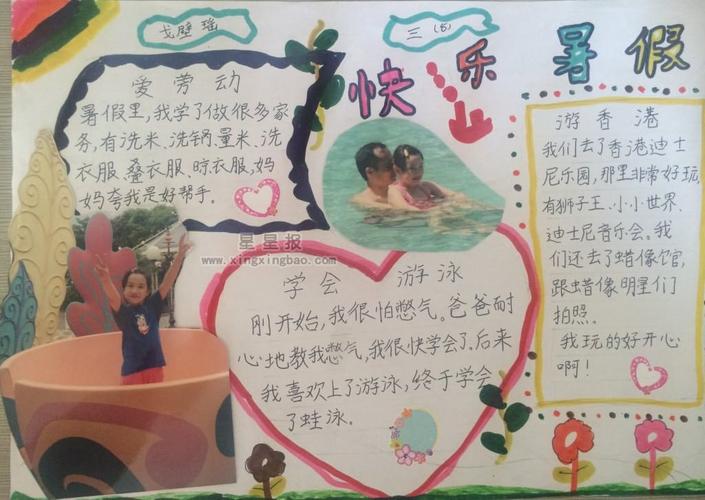 戈壁瑶
三(5)
快乐暑假
爱劳动
暑假里,我学了做很多家
务,有洗米、洗锅、量米、洗
衣服、叠衣服、晾衣服,妈
妈夸我是好帮手。
游香港
我们去了香港迪士
尼乐园,那里非常好玩,
有狮子王、小小世界、
迪士尼音乐会。我
们还去了蜡像馆,
跟蜡像明星们
拍照。
我玩的好开心
啊!
星星报
www.xingxingbao.com
学会游泳
刚开始,我很怕憋气。爸爸耐
心地教我憋气,我很快学会了。后来
我喜欢上了游泳,终于学会
了蛙泳。